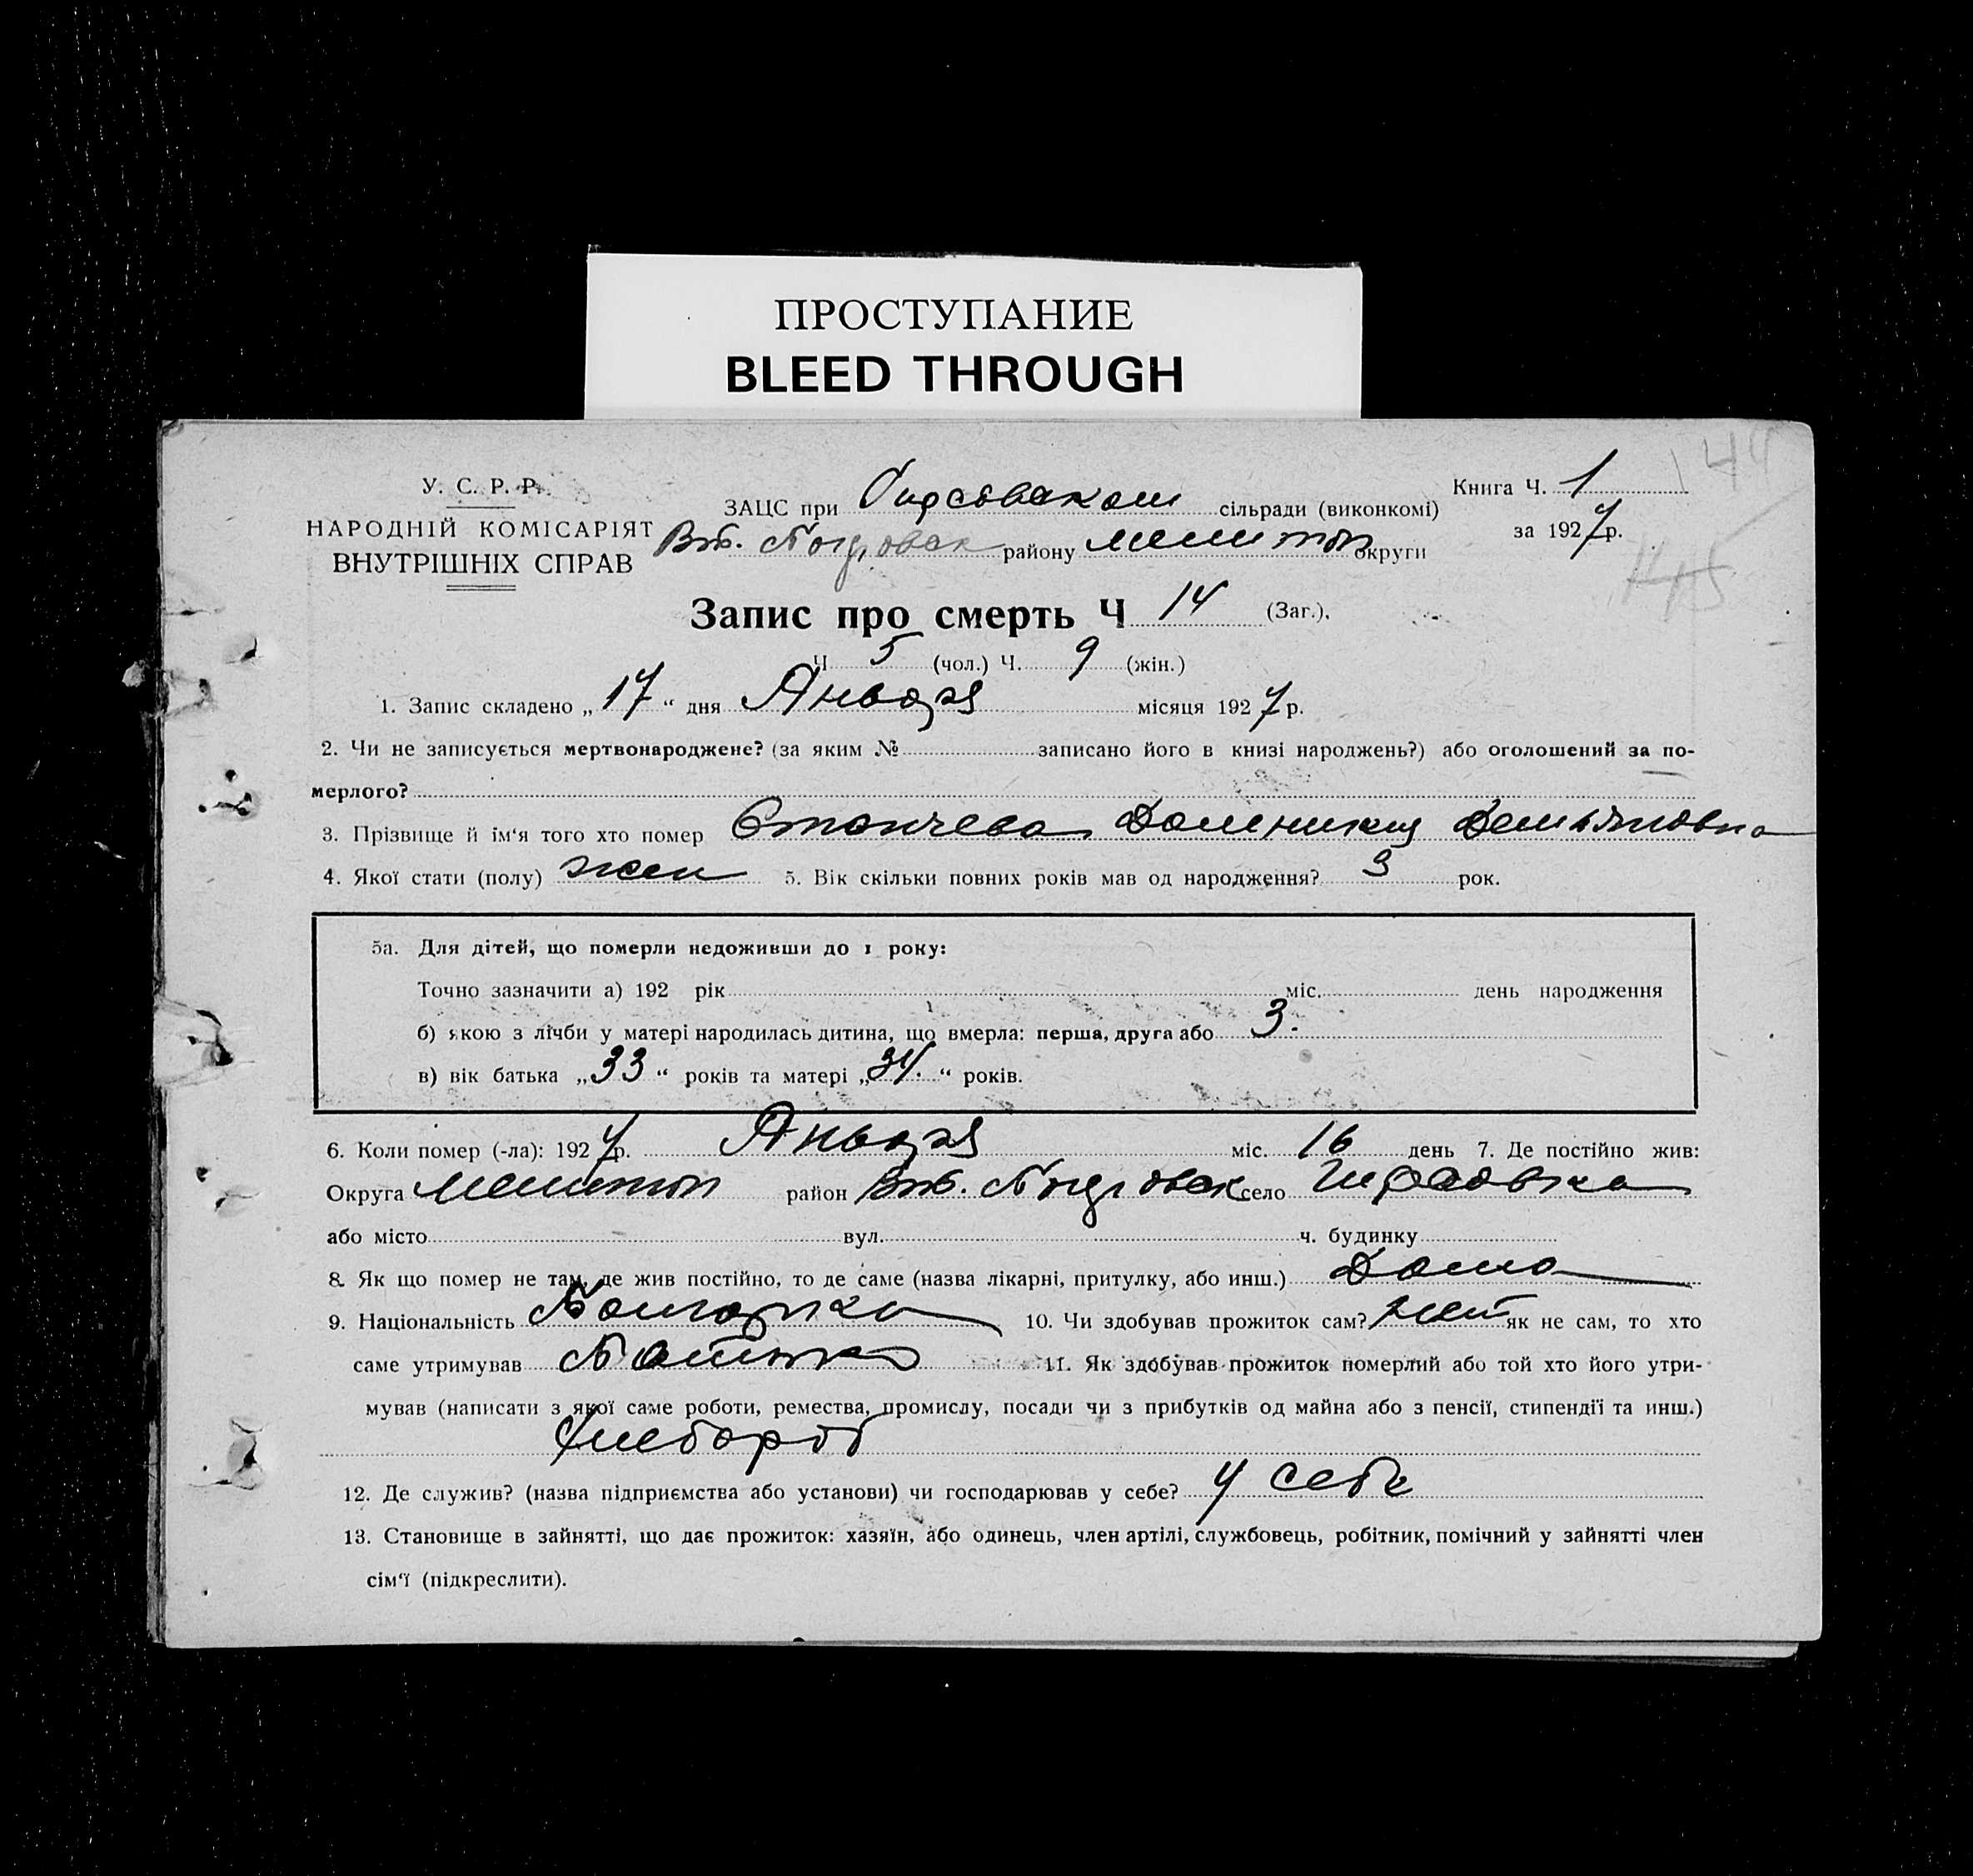 ПРОСТУПАНИЕ
BLEED THROUGH
У. С. Р. Р.
НАРОДНІЙ КОМІСАРІЯТ
ВНУТРІШНІХ СПРАВ
ЗАЦС при сільради (виконкомі)
району Мелитоп округи
Книга Ч. 1
за 1927 р.
144
145
Запис про смерть Ч 14 (Заг.).
Ч 5 (чол.) Ч. 9 (жін.)
1. Запис складено „ 17 “ дня Января місяця 1927 р.
2. Чи не записується мертвонароджене? (за яким № записано його в книзі народжень?) або оголошений за по-
мерлого?
3. Прізвище й ім'я того хто помер Станчева Доменикия Демьяновна
4. Якої стати (полу) жен 5. Вік скільки повних років мав од народження? 3 рок.
5а. Для дітей, що померли недоживши до 1 року:
Точно зазначити а) 192 рік міс. день народження
б) якою з лічби у матері народилась дитина, що вмерла: перша, друга або 3.
в) вік батька „33“ років та матері „34.“ років.
6. Коли помер (-ла): 1927 р. Января міс. 16 день 7. Де постійно жив:
Округа Мелитоп район село Гирсовка
або місто вул. ч. будинку
8. Як що помер не там, де жив постійно, то де саме (назва лікарні, притулку, або инш.) Дома
9. Національність Болгарка 10. Чи здобував прожиток сам? Нет як не сам, то хто
саме утримував Батько 11. Як здобував прожиток померлий або той хто його утри-
мував (написати з якої саме роботи, ремества, промислу, посади чи з прибутків од майна або з пенсії, стипендії та инш.)
Хлебороб
12. Де служив? (назва підприємства або установи) чи господарював у себе? у себе
13. Становище в зайнятті, що дає прожиток: хазяїн, або одинець, член артілі, службовець, робітник, помічний у зайнятті член
сім'ї (підкреслити).